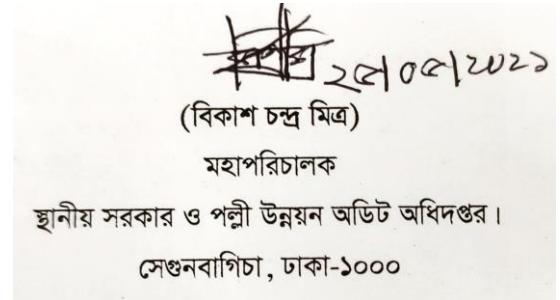 ২৫|০৫|২০২১
(বিকাশ চন্দ্র মিত্র)
মহাপরিচালক
স্থানীয় সরকার ও পল্লী উন্নয়ন অডিট অধিদপ্তর।
সেগুনবাগিচা, ঢাকা-১০০০